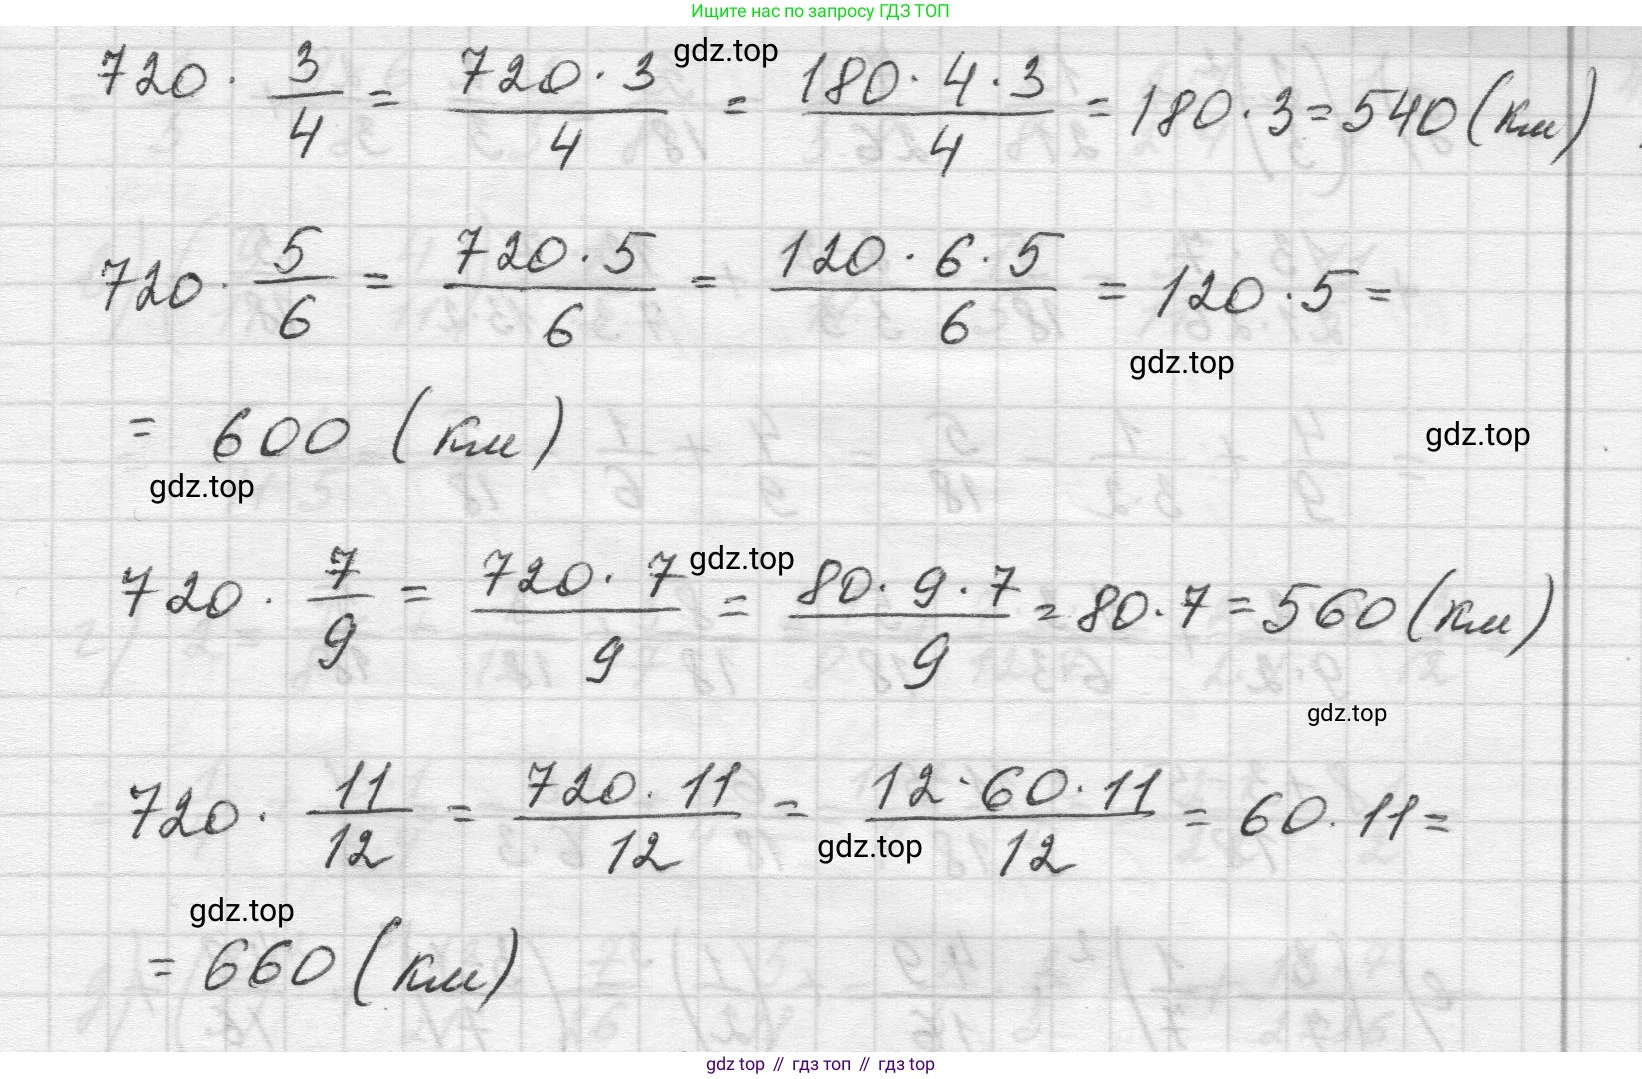 Ищите нас по запросу ГДЗ ТОП
720 · 3/4 = 720 · 3/4 = 180 · 4 · 3/4 = 180 · 3 = 540 (км)
gdz.top
720 · 5/6 = 720 · 5/6 = 120 · 6 · 5/6 = 120 · 5 =
gdz.top
= 600 (км)
gdz.top
gdz.top
720 · 7/9 = 720 · 7/9 = 80 · 9 · 7/9 = 80 · 7 = 560 (км)
gdz.top
gdz.top
720 · 11/12 = 720 · 11/12 = 12 · 60 · 11/12 = 60 · 11 =
gdz.top
gdz.top
= 660 (км)
gdz top // гдз топ // гдз top